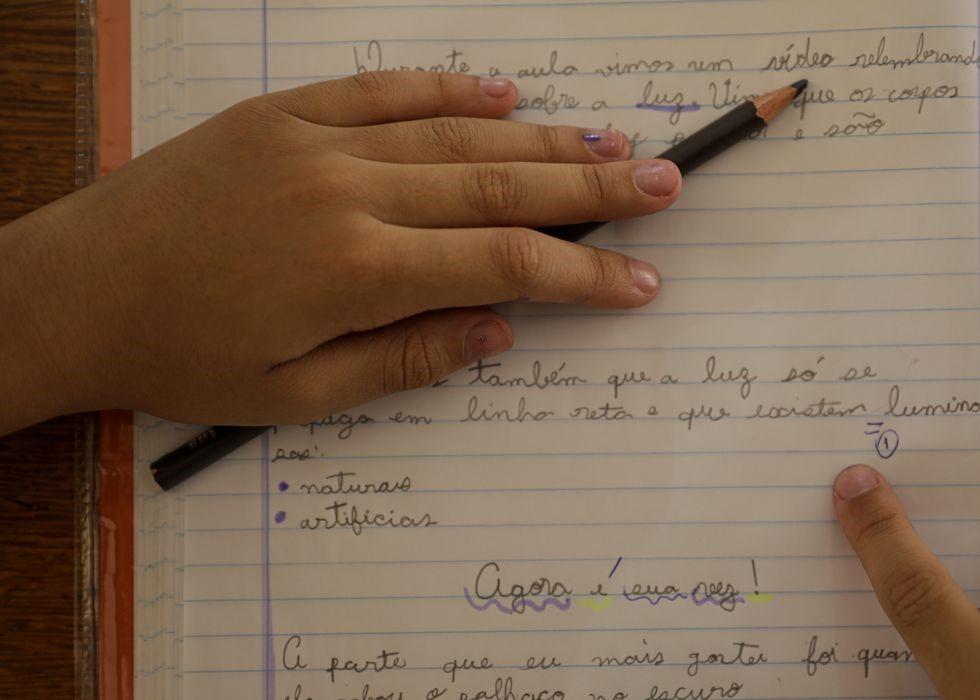 Durante a aula vimos um vídeo relembrand
sobre a luz. Vim que os corpos
e são
também que a luz só se
paga em linha reta e que existem lumino
sas:
1
• naturais
• artificias
Agora é sua vez!
A parte que eu mais gostei foi quan
o palhaço no escuro